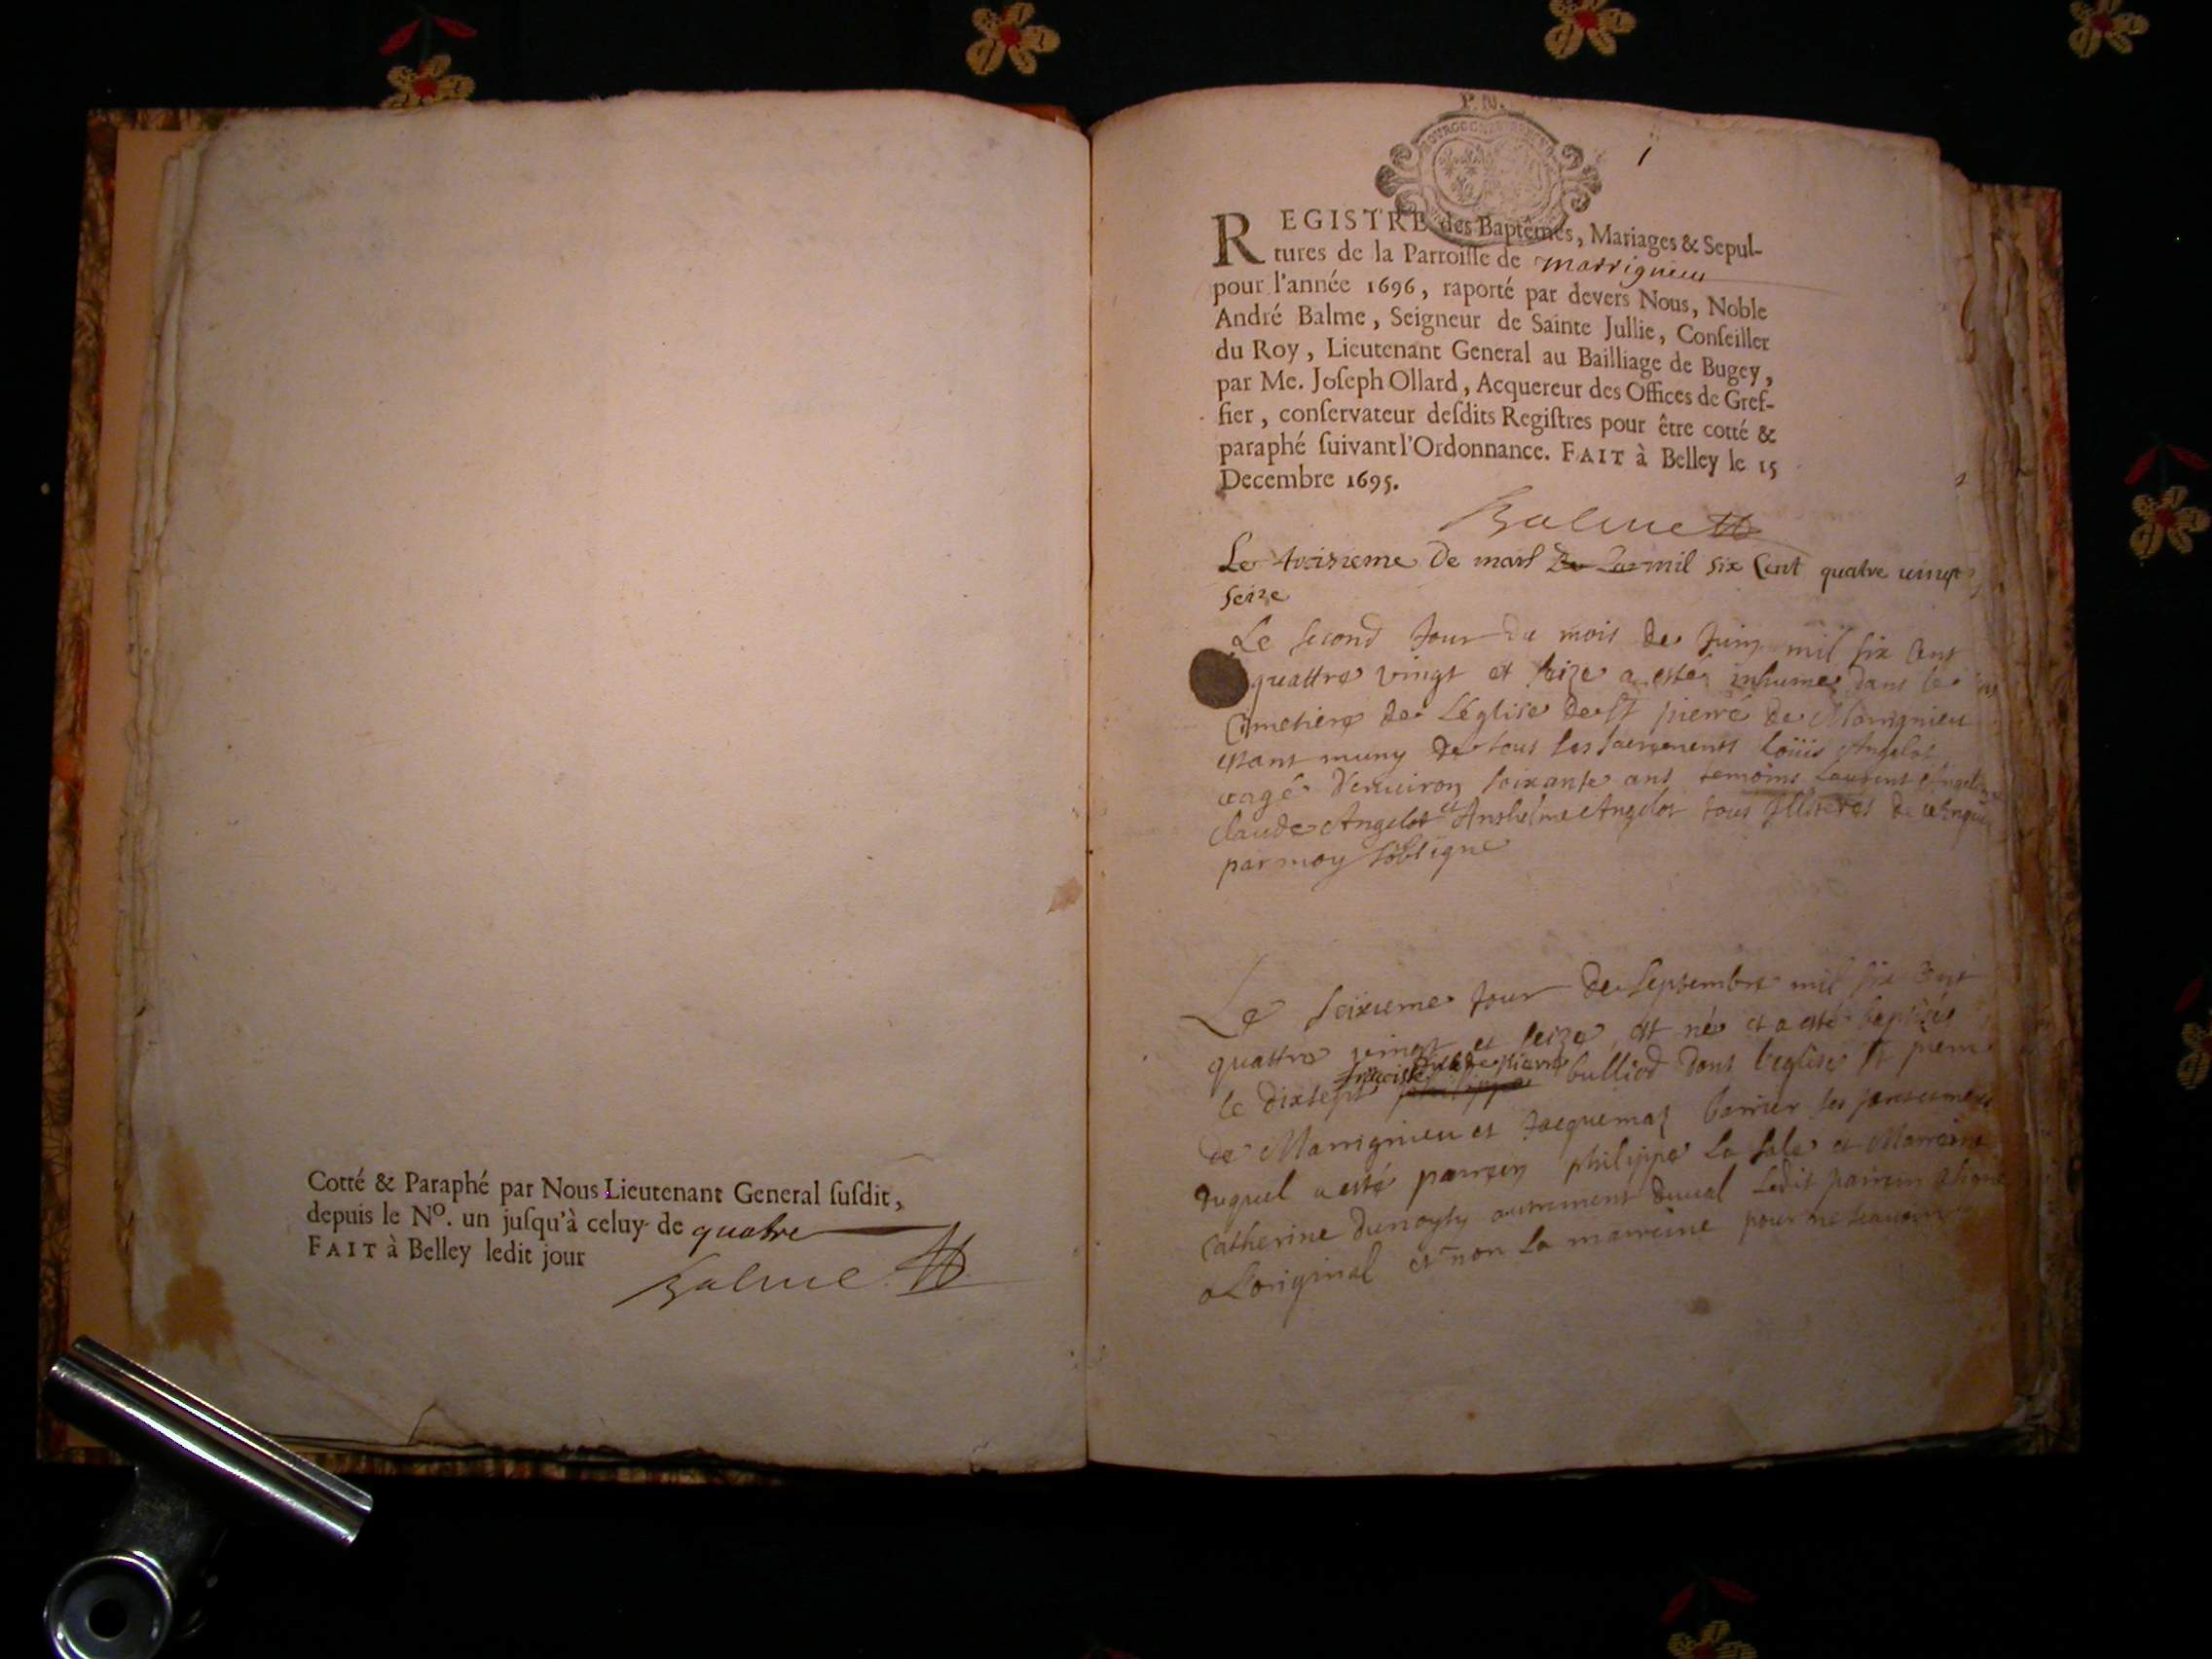 Cotté & Paraphé par Nous Lieutenant General ſuſdit,
depuis le No. un juſqu'à celuy de quatre
FAIT à Belley ledit jour
Balme
P. N.
1
REGISTRE des Baptêmes, Mariages & Sepul-
tures de la Parroiſſe de marrignieu
pour l'année 1696, raporté par devers Nous, Noble
André Balme, Seigneur de Sainte Jullie, Conſeiller
du Roy, Lieutenant General au Bailliage de Bugey,
par Me. Joſeph Ollard, Acquereur des Offices de Gref-
fier, conſervateur deſdits Regiſtres pour être cotté &
paraphé ſuivant l'Ordonnance. FAIT à Belley le 15
Decembre 1695.
Balme
Le troizieme De mars mil six Cent quatre uingt
seize
Le second Jour du mois de Juin mil six Cent
quattre vingt et seize a esté inhumé dans le
Cimetiere de L'église de St pierre de Marignieu
estant muny de tous les sacrements Loüis Angelot
aagé d'enuiron soixante ans temoins Laurent Angelot
claude Angelot et Anthelme Angelot tous Illiteres de ce
par moy soubsigné
Le seizieme Jour de septembre mil six Cent
quattre uingt et seize, est né et a esté baptisé
le dixsept de pierre bulliod dans l'eglise St pierre
de Marrignieu et Jacquemaz barrier ses
duquel a esté parrein philippe La sale et Marreine
Catherine autrement duual Ledit parrein a signé
a L'original et non La marreine pour ne scauoir